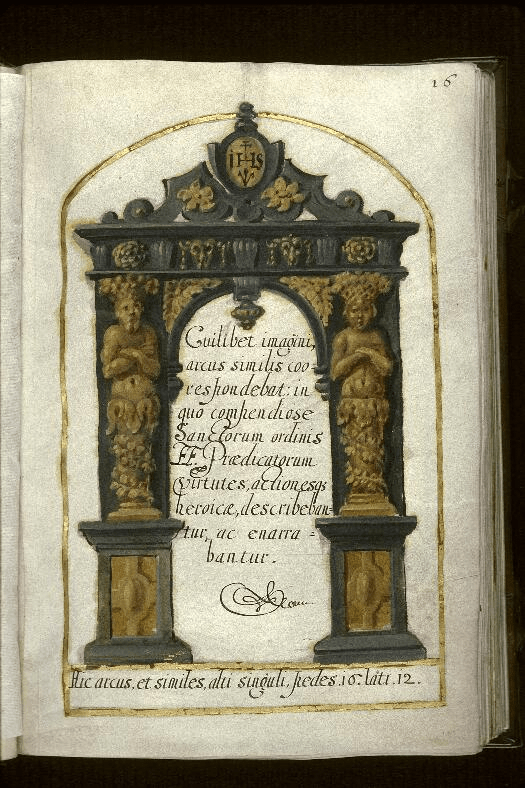 16
IHS
Cuilibet imagini,
arcus similis coo=
respondebat: in
quo compendiose
Sanctorum ordinis
FF. Prædicatorum
virtutes, actionesqз
heroicæ, describeban=
tur, ac enarra =
bantur.
Hic arcus, et similes, alti singuli, pedes .16. lati .12.